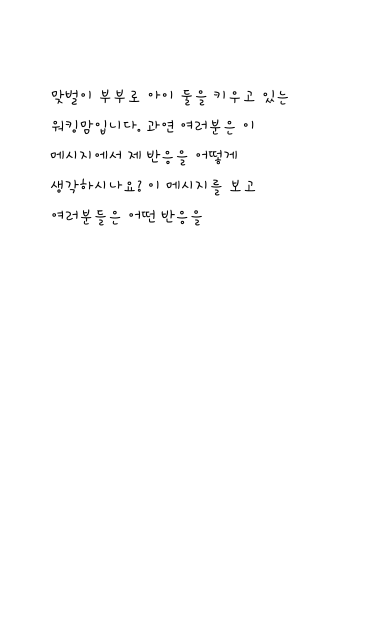 맞벌이 부부로 아이 둘을 키우고 있는
워킹맘입니다. 과연 여러분은 이
메시지에서 제 반응을 어떻게
생각하시나요? 이 메시지를 보고
여러분들은 어떤 반응을